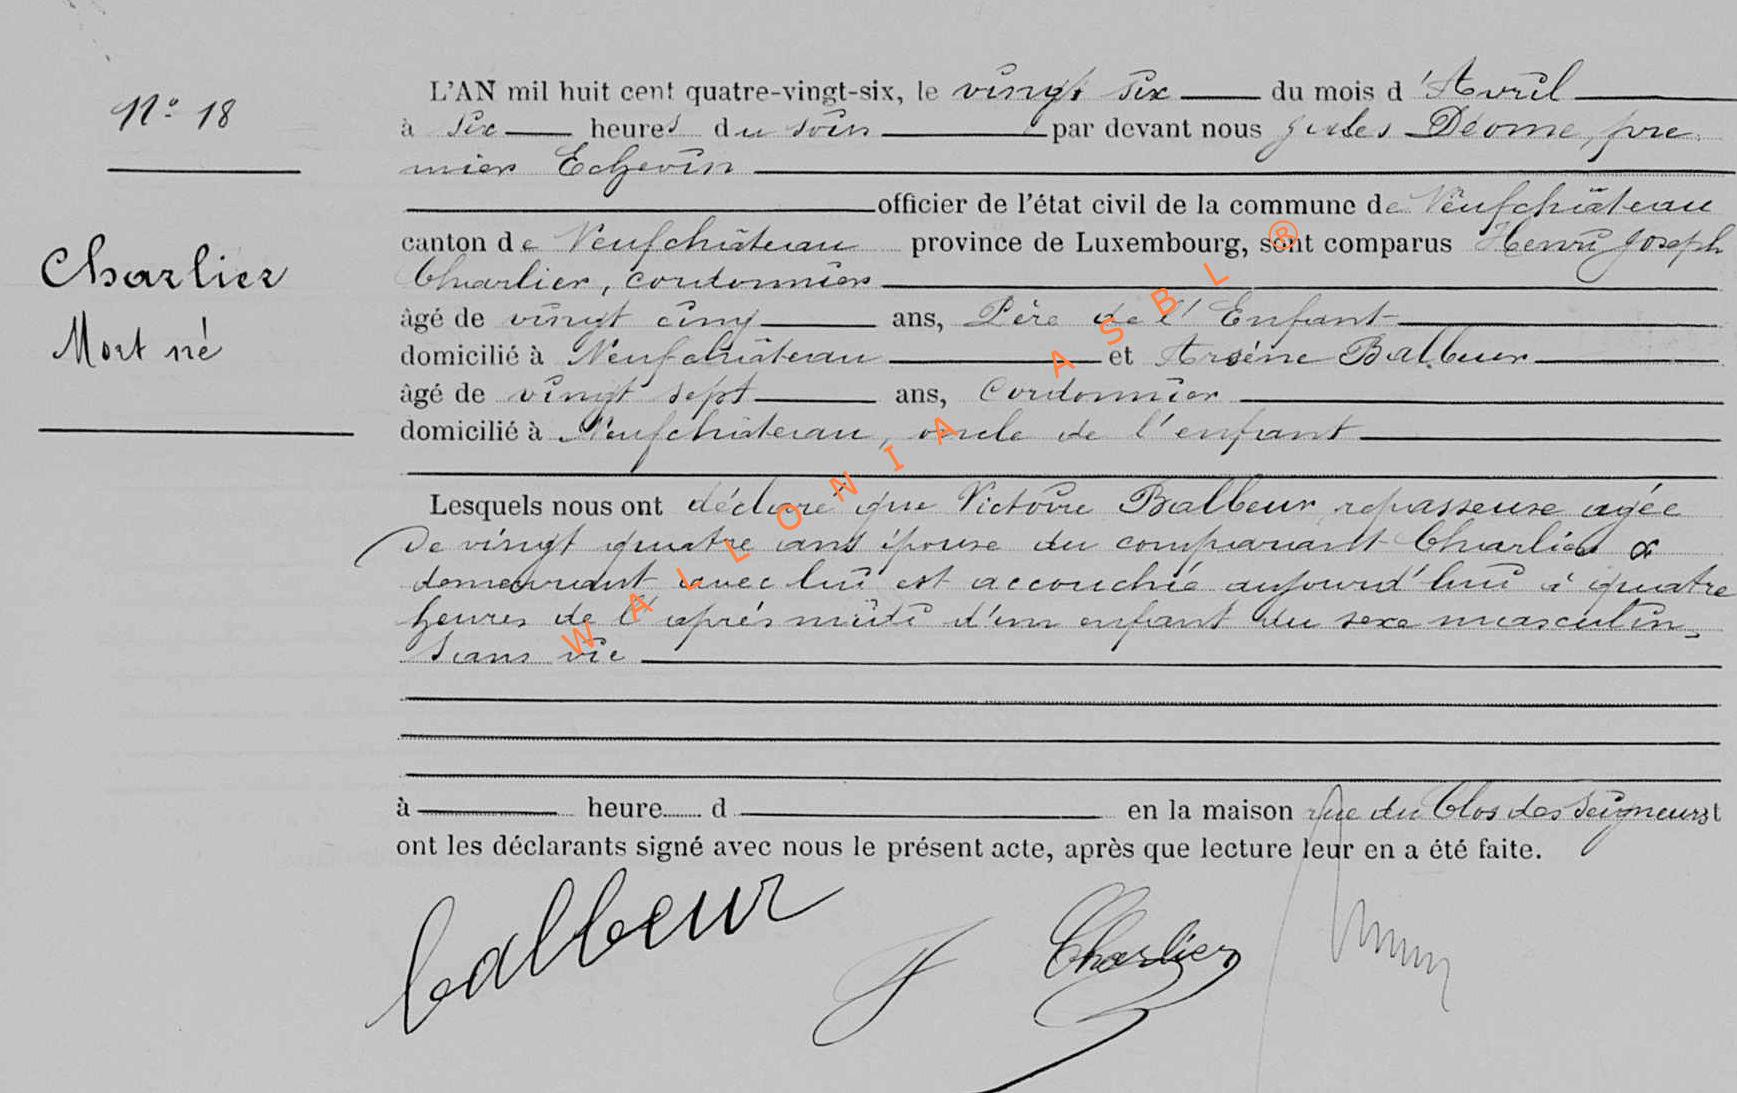 N° 18
Charlier
Mort né
L'AN mil huit cent quatre-vingt-six, le vingt six du mois d'Avril
à six heures du soir par devant nous Jules Déome, pre
mier Echevin
officier de l'état civil de la commune de Neufchâteau
canton de Neufchâteau province de Luxembourg, sont comparus Henri Joseph
Charlier, cordonnier
âgé de vingt cinq ans, Père de l'Enfant
domicilié à Neufchâteau et Arsène Balbeur
âgé de vingt sept ans, Cordonnier
domicilié à Neufchâteau, oncle de l'enfant
Lesquels nous ont déclaré que Victoire Balbeur, repasseuse agée
de vingt quatre ans épouse du comparant Charlier &
demeurant avec lui est accouchée aujourd'hui à quatre
heures de l'après midi d'un enfant du sexe masculin,
sans vie
à heure d en la maison rue du Clos des Seigneurs et
ont les déclarants signé avec nous le présent acte, après que lecture leur en a été faite.
balbeur Charlier
WALLONIA ASBL ®